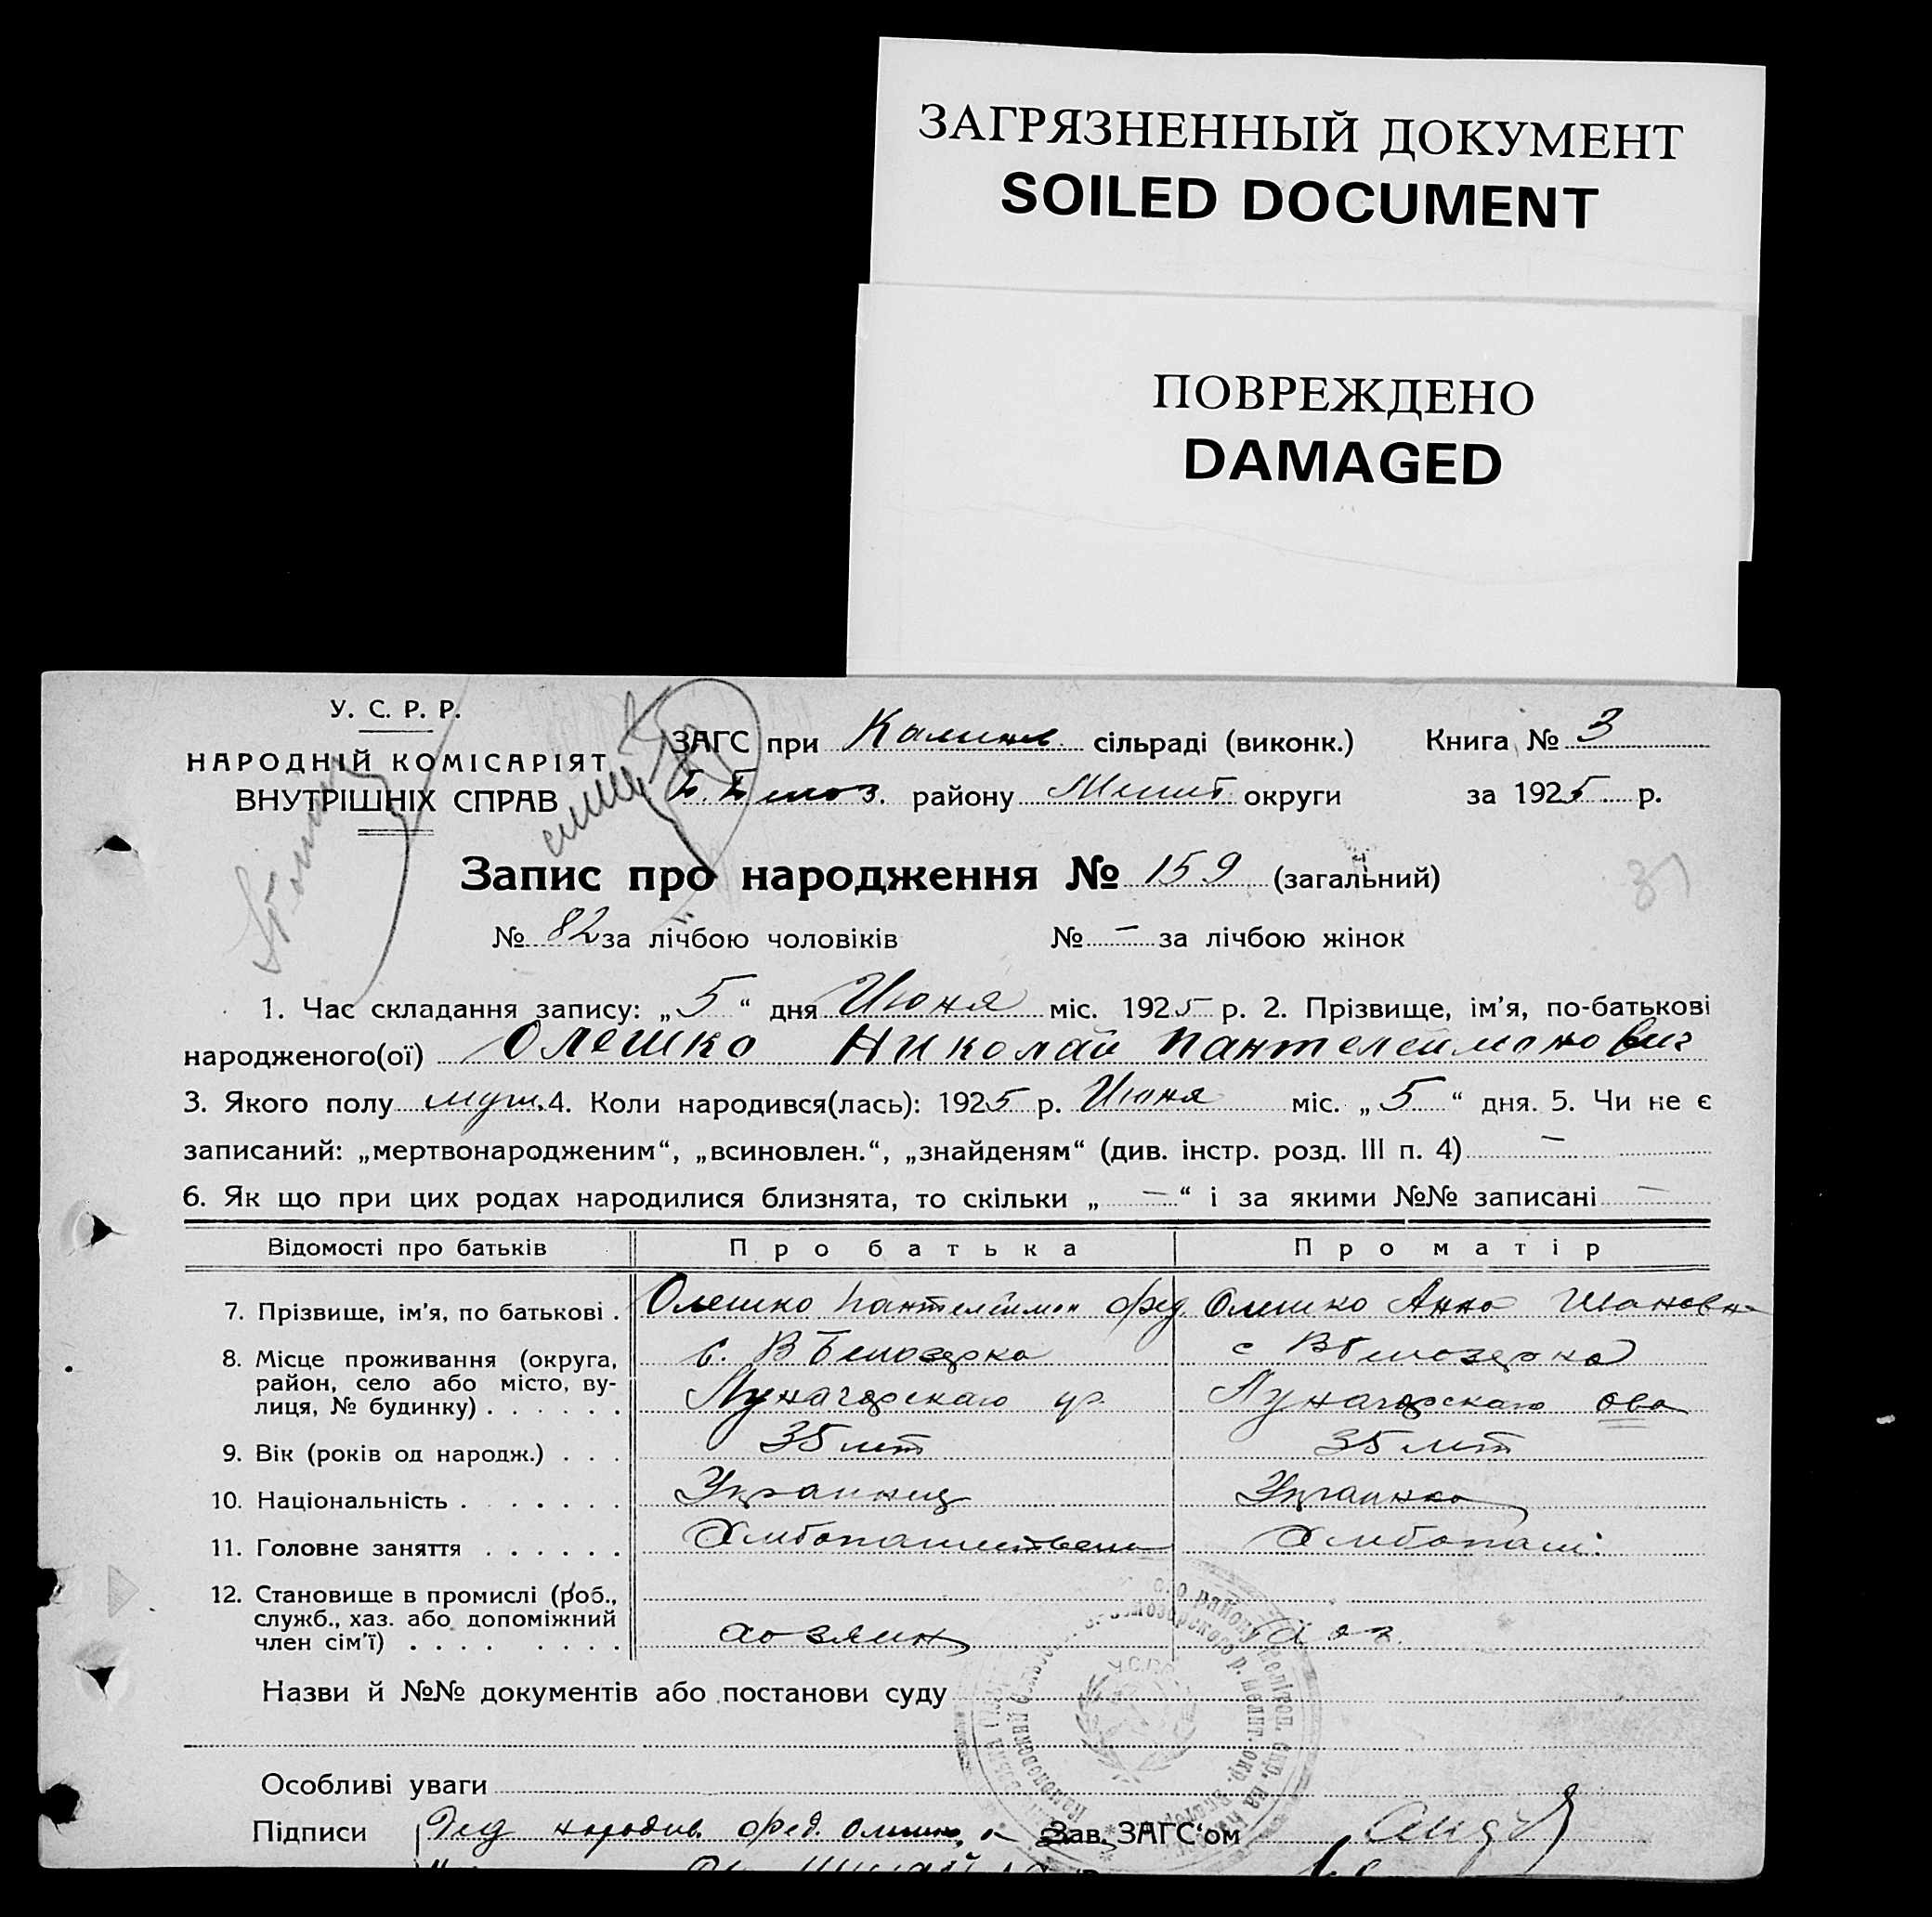 ЗАГРЯЗНЕННЫЙ ДОКУМЕНТ
SOILED DOCUMENT
ПОВРЕЖДЕНО
DAMAGED
У. С. Р. Р.
НАРОДНІЙ КОМІСАРІЯТ
ВНУТРІШНІХ СПРАВ
ЗАГС при Калинов. сільраді (виконк.) Книга № 3
Б. Белоз. району Мелит округи за 1925 р.
Запис про народження № 159 (загальний)
№ 82 за лічбою чоловіків № — за лічбою жінок
1. Час складання запису: „5“ дня Июня міс. 1925 р. 2. Прізвище, ім'я, по-батькові
народженого(ої) Олешко Николай Пантелеймонович
3. Якого полу муж. 4. Коли народився(лась): 1925 р. Июня міс. „5“ дня. 5. Чи не є
записаний: „мертвонародженим“, „всиновлен.“, „знайденям“ (див. інстр. розд. III п. 4) —
6. Як що при цих родах народилися близнята, то скільки „—“ і за якими №№ записані —
Відомості про батьків Про батька Про матір
7. Прізвище, ім'я, по батькові . Олешко Пантелеймон Фед. Олешко Анна Ивановна
8. Місце проживання (округа, с. В Белозерка с ВБелозерка
район, село або місто, ву-
лиця, № будинку) . . . . . . Луначарскаго Луначарскаго
9. Вік (років од народж.) . . . 35 лет 35 лет
10. Національність . . . . . . . Украинец Украинка
11. Головне заняття . . . . . . Хлебопашество Хлебопаш.
12. Становище в промислі (роб.,
служб., хаз. або допоміжний
член сім'ї) . . . . . . . . хозяин
Назви й №№ документів або постанови суду
У.С.Р.Р.
Особливі уваги
Підписи Дед народив. Фед. Олешко Зав. ЗАГС'ом